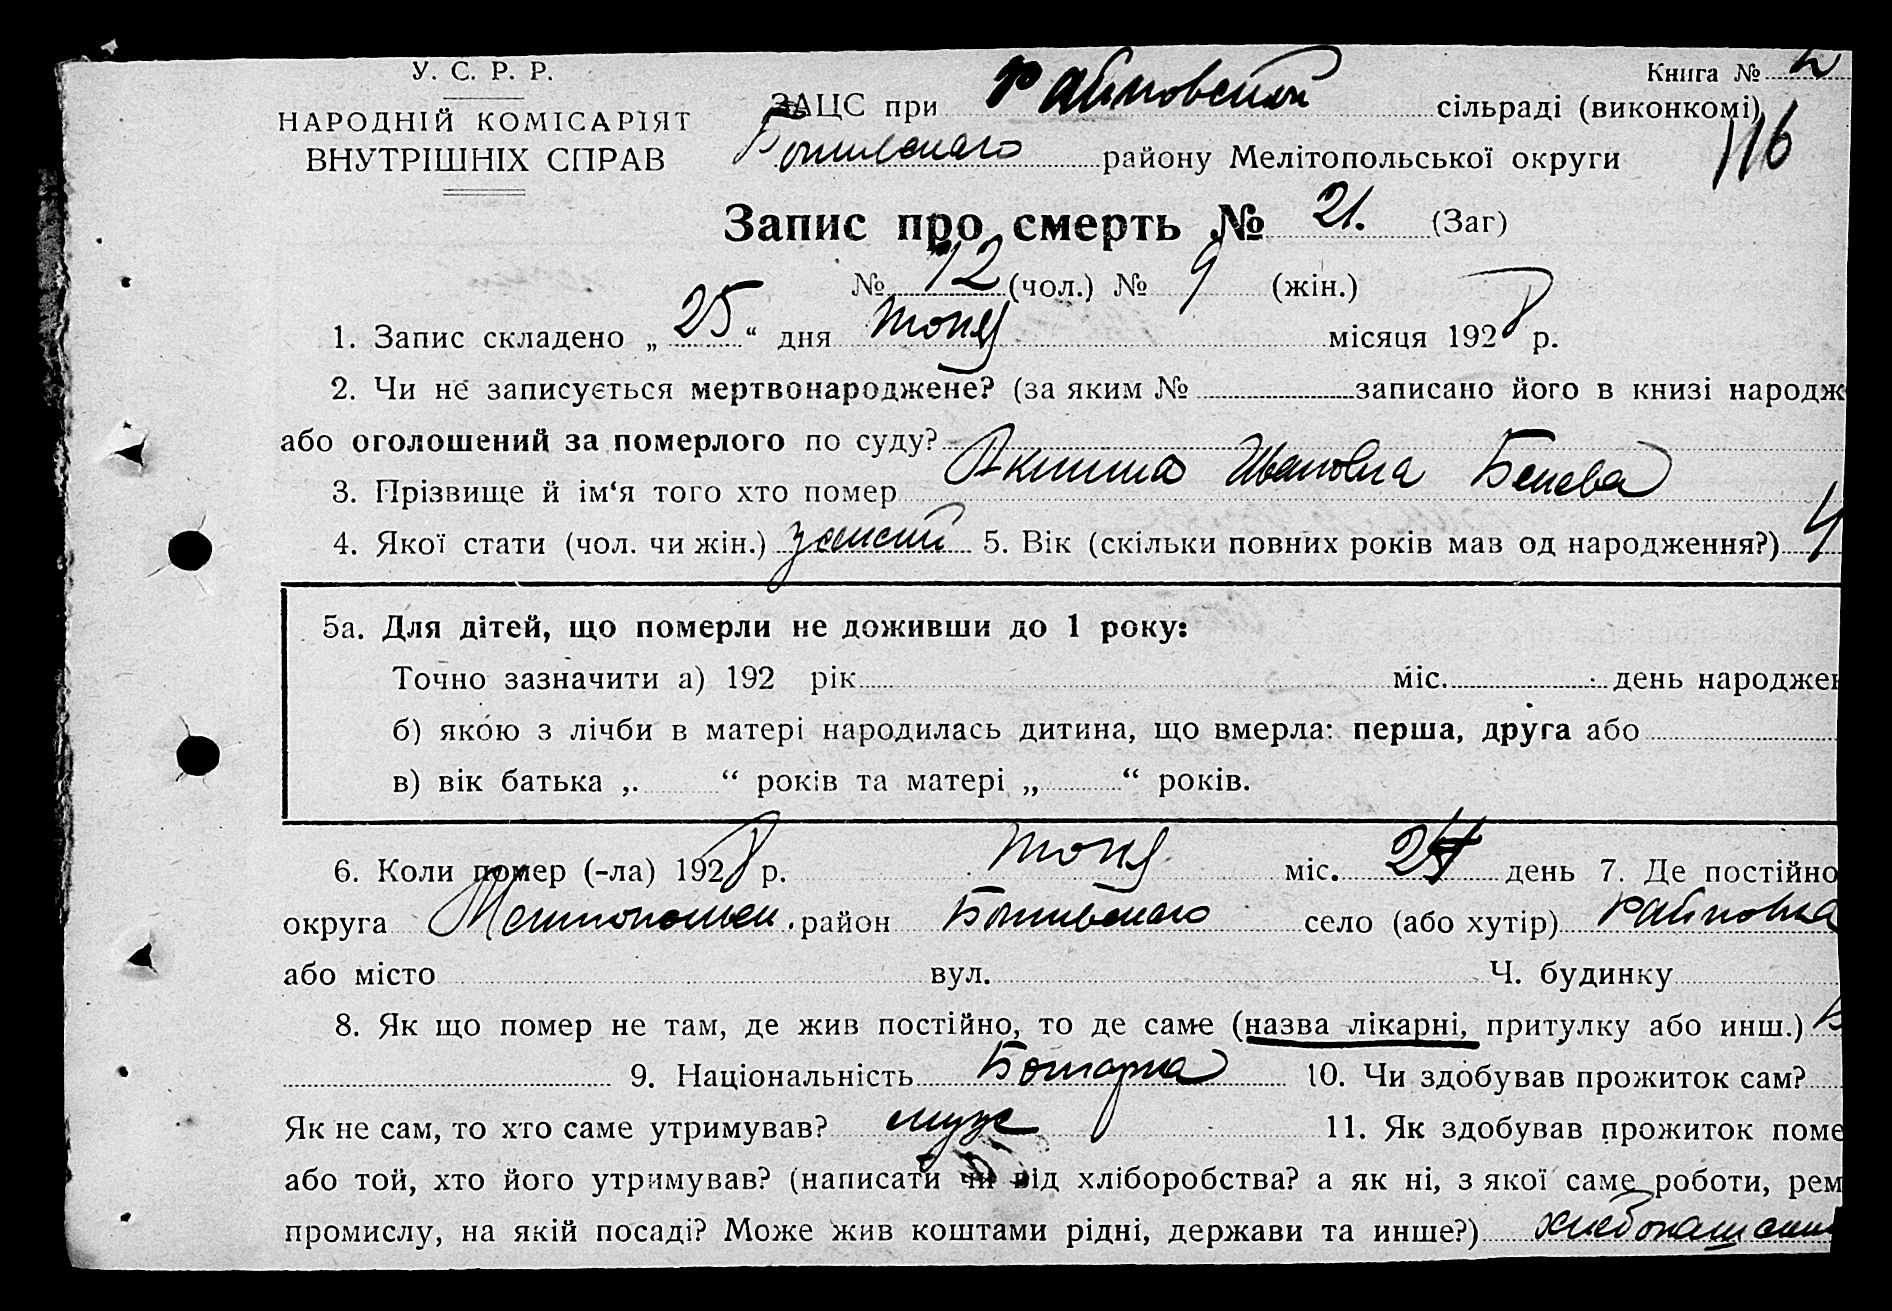 У. С. Р. Р.
НАРОДНІЙ КОМІСАРІЯТ
ВНУТРІШНІХ СПРАВ
Книга № 2
ЗАЦС при Райновский сільраді (виконкомі)
116
району Мелітопольської округи
Запис про смерть № 21. (Заг)
№ 12 (чол.) № 9 (жін.)
1. Запис складено „ 25 “ дня июня місяця 1928 р.
2. Чи не записується мертвонароджене? (за яким № записано його в книзі народж
або оголошений за померлого по суду?
3. Прізвище й ім‘я того хто помер Акилина Ивановна Бенева
4. Якої стати (чол. чи жін.) женский 5. Вік (скільки повних років мав од народження?) 4
5а. Для дітей, що померли не доживши до 1 року:
Точно зазначити а) 192 рік міс. день народжен
б) якою з лічби в матері народилась дитина, що вмерла: перша, друга або
в) вік батька „ “ років та матері „ “ років.
6. Коли помер (-ла) 1928 р. июня міс. 24 день 7. Де постійно
округа Мелитопольск. район село (або хутір) Райновка
або місто вул. Ч. будинку
8. Як що помер не там, де жив постійно, то де саме (назва лікарні, притулку або инш.)
9. Національність Болгарка 10. Чи здобував прожиток сам?
Як не сам, то хто саме утримував? муж 11. Як здобував прожиток поме
або той, хто його утримував? (написати чи від хліборобства? а як ні, з якої саме роботи, рем
промислу, на якій посаді? Може жив коштами рідні, держави та инше?) хлебопашеств